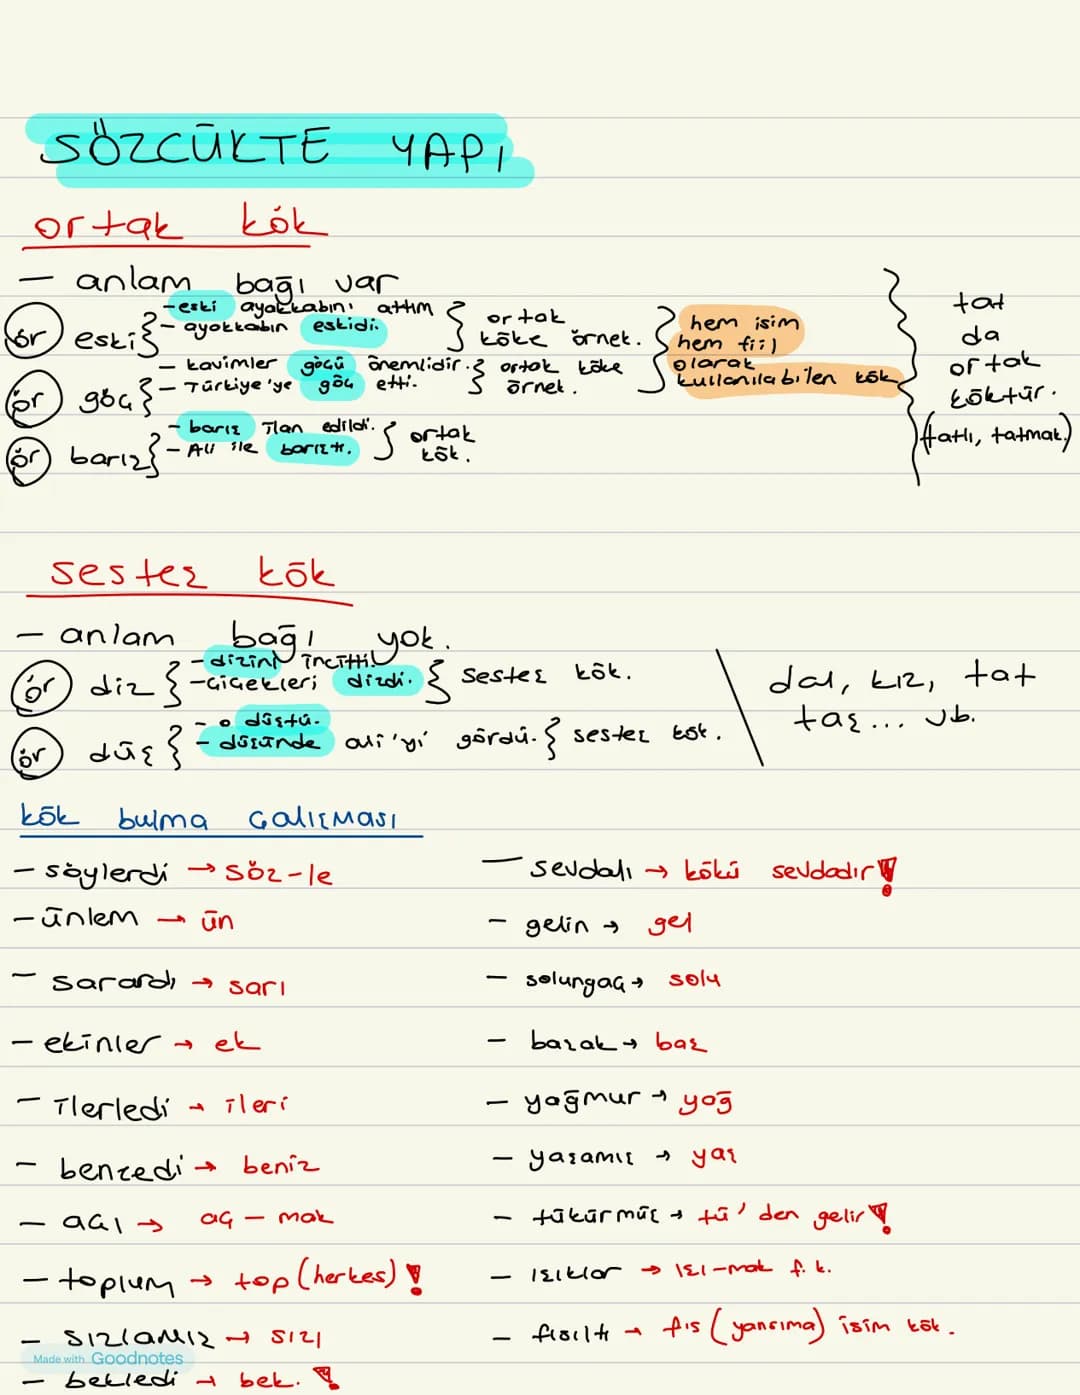 SÖZCÜKTE YAPI
ortak kök
— anlam bağı var
ör eski { - eski ayakkabını attım - ayakkabın eskidi. } ortak köke örnek.
ör göç { - kavimler göçü önemlidir. - Türkiye'ye göç etti. } ortak köke örnek.
hem isim
hem fiil
olarak
kullanılabilen kök
ör barış { - barış ilan edildi. - Ali ile barıştı. } ortak kök.
tat
da
ortak
köktür.
(tatlı, tatmak.)
sesteş kök
— anlam bağı yok.
ör diz { - dizini incitti. - çiçekleri dizdi. } sesteş kök.
ör düş { - o düştü. - düşünde ali'yi gördü. } sesteş kök.
dal, kız, tat
taş... vb.
kök bulma çalışması
- söylerdi → söz-le
- ünlem → ün
- sarardı → sarı
- ekinler → ek
- ilerledi → ileri
- benzedi → beniz
- açı → aç - mak
- toplum → top (herkes) !
- sızlamış → sızı
- bekledi → bek. !
- sevdalı → kökü sevdadır !
- gelin → gel
- solungaç → solu
- başak → baş
- yağmur → yağ
- yaşamış → yaş
- tükürmüş → tü' den gelir !
- ışıklar → ışı-mak f. k.
- fısıltı → fıs (yansıma) isim kök.
Made with Goodnotes